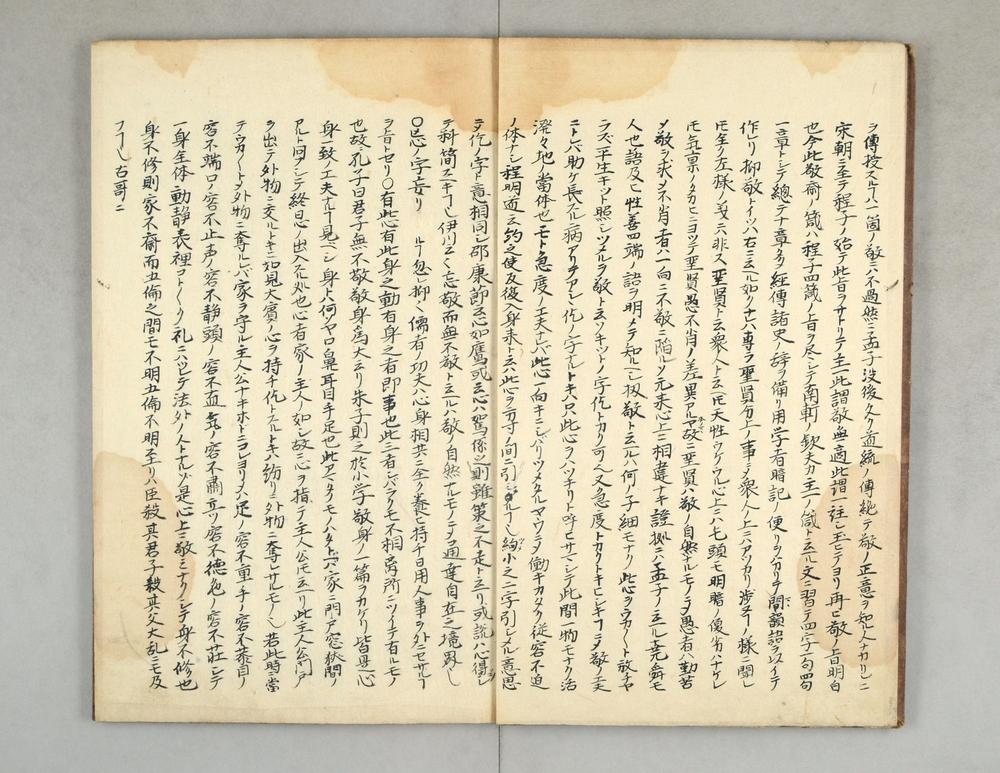 ヲ傳授スル一箇ノ敬ニ不過然ニ孟子没後久ク道統ノ傳絶テ敬ノ正意ヲ知人ナカリシニ
宋朝ニ至テ程子ノ始テ此旨ヲサトリテ主一此謂敬無適此謂一註シ玉ヒテヨリ再ヒ敬ノ旨明白
也今此敬斎ノ箴ハ程子四箴ノ旨ヲ尽シテ南軒ノ欽夫カ主一ノ箴ト云ル文ニ習テ四字一句四句
一章トシテ總テ十章タリ經傳諸史ノ辞ヲ備リ用学者暗記ノ便リ韻語ヲ以イテ
作レリ抑敬トイツハ右ニ云ル如ク十ニ八専ヲ聖賢分上ノ事ニメ衆人ノ上ニハアツカリ渉ヌヿノ様ニ聞レ
氏全ク左様ノ義ニ非ス聖賢ト云衆人ト云氏天性ウケウル心上ニハ七頭モ明暗ノ優劣ハナケレ
氏氣禀ノタカヒニヨツテ聖賢愚不肖ノ差異アルヤ故ニ聖賢ハ敬ノ自然ナルモノニメ愚者ハ勤苦
メ敬ヲ求メ不肖者ハ一向ニ不敬ニ陥ルソ元来心上ニ相違ナキ證拠ニハ孟子ノ云ル堯舜モ
人也語及ヒ性善四端ノ語ヲ明メテ知ルヘシ扨敬ト云ルハ何ノ子細モナク此心ヲウカ〱ト放チヤ
ラズ平生キット照シツメルヲ敬ト云ソキットノ字仡トカリ可又急度トカリトキビシキヿニメ敬ノ工夫
ニト心助ケ長スル病アリテアシシ仡ノ字ナルトキハ只此心ヲハツチリト呼ヒサマシテ此間一物モナク治
潑々地ノ當体也モト急度ノ工夫ナレバ此心一向キニシバリツメタルヤウニメ働キカタク従容不迫
ノ体ナシ程明道云約之使反復入身来ト云ハ此心ヲ方寸ノ間ニ引シメルヿ也約ハ之二字引シメル意思
テ仡ノ字ト意相同シ邵康節云心如鷹或云心ハ駕係之則雛策之不走ト云リ或説ハ心得シ
テ科簡スヘキヿ也伊川云ク忘敬而無不敬ト云ルハ敬ノ自然ナルモノニメ通達自在之境界也
〇忌ノ字音リ ルヿ忽抑儒者ノ功夫ハ心身相共ニ全ク養ヒ持チ日用人事ヲ外ニセサルヿ
ヲ旨トセリ〇有此心有此身之動有身之者即事也此三者シバラクモ不相离所ニツイテ有ルモノ
也故ニ孔子曰君子無不敬敬身爲大云リ朱子則之於小学敬身ノ一篇ヲカケリ皆是心
身一致ノ工夫ナルヿ見ベシ身トハ何ソヤロ鼻耳目手足也此アツクモノハタトヘハ家ニ門戸窓狭間ノ
アルト同ノシテ終日心ノ出入スル処也心者家ノ主人ノ如シ故ニ心ヲ指テ主人公モ云リ此主人公門戸
ヲ出テ外物ニ交ルトキニ如見大賓ノ心ヲ持チ仡トスルトキハ紛リニ外物ニ奪ヒサルモノ也若此時ニ當
テウカ〱トメ外物ニ奪ルレバ家ヲ守ル主人公ナキホトニコレヨリメハ足ノ容不重手ノ容不恭目ノ
容不端口ノ容不止声ノ容不静頭ノ容不直氣ノ容不肅立ノ容不徳色ノ容不荘シテ
一身全体動静表裡コト〱ク礼ニハツシテ法外ノ人トナルソ是心上ニ敬ミナクノシテ身不修也
身不修則家不齋而五倫之間モ不明五倫不明至リハ臣殺其君子殺其父大乱ニモ及
フヿ也右哥ニ